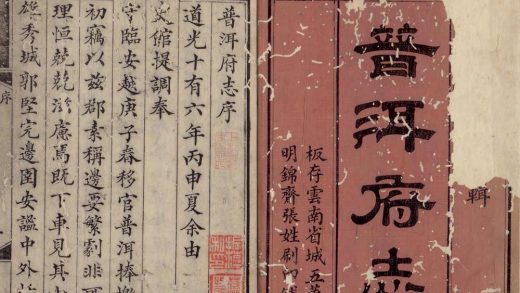 輯
普洱府志
板存雲南省城五
明錦齋張姓刷印
普洱府志序
道光十有六年丙申夏余由
史館提調奉
守臨安越庚子春移官普洱捧檄
初竊以茲郡素稱邊要繁劇非可
理恒兢兢滋慮焉既下車見其
雄秀城郭堅完邊圉安謐中外
序